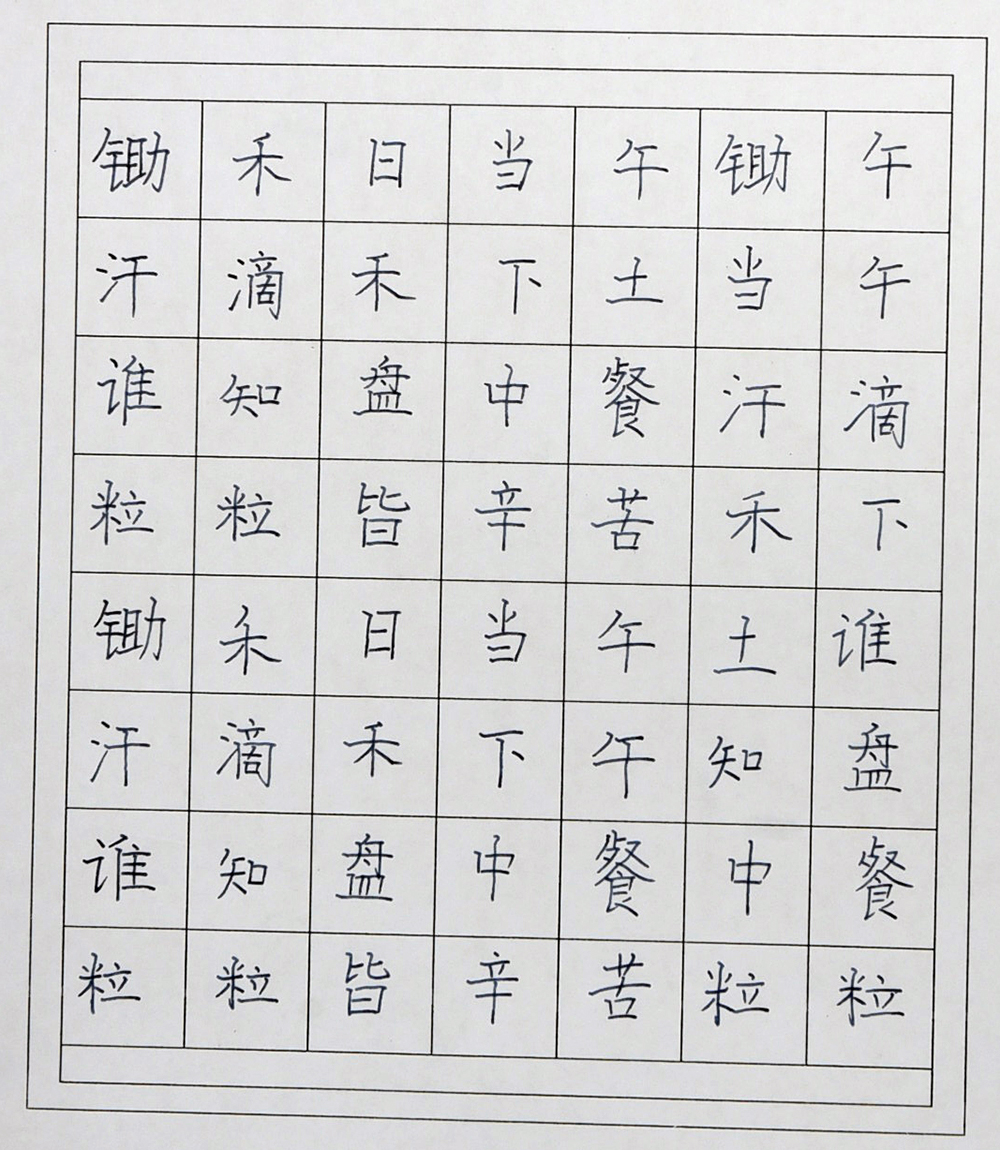 锄禾日当午锄午
汗滴禾下土当午
谁知盘中餐汗滴
粒粒皆辛苦禾下
锄禾日当午土谁
汗滴禾下午知盘
谁知盘中餐中餐
粒粒皆辛苦粒粒